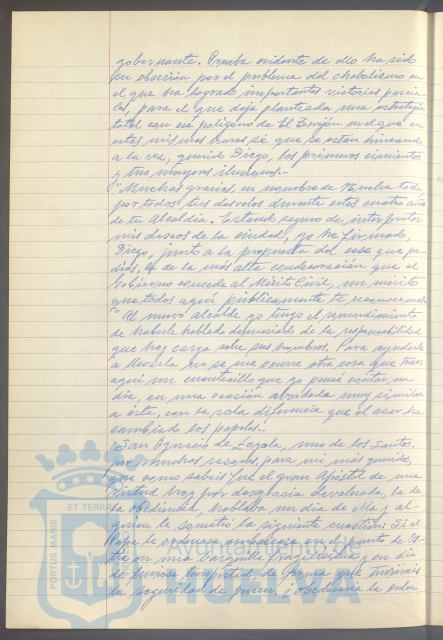 gobernante. Prueba evidente de ello ha sido
su obsesión por el problema del chabolismo en
el que ha logrado importantes victorias parcia-
les, para el que deja planteada una estrategia
total con ese polígono de El Torrejón en el que en
estas mismas horas sé que se están hincando
a la vez, querido Diego, los primeros cimientos
y tus mayores ilusiones.-
"Muchas gracias, en nombre de Huelva toda,
por todos tus desvelos durante estos cuatro años
de tu Alcaldía. Estando seguro de interpretar
mis deseos de la ciudad, yo he firmado,
Diego, junto a la propuesta del cese que pe-
días, la de la más alta condecoración que el
Gobierno concede al Mérito Civil, un mérito
que todos aquí públicamente te reconocemos.
"Al nuevo alcalde yo tengo el remordimiento
de haberle hablado demasiado de la responsabilidad
que hoy carga sobre sus hombros. Para ayudarle
a llevarla no se me ocurre otra cosa que traer
aquí un cuentecillo que yo pensé contar, un
día, en una ocasión abordada muy similar
a ésta, con la sola diferencia que el azar ha
cambiado los papeles.-
"San Ignacio de Loyola, uno de los Santos,
por muchas razones, para mí más querido,
que como sabéis fue el gran Apóstol de una
virtud hoy por desgracia devaluada, la de
la obediencia, hablaba un día de ella y al-
guien le sometió la siguiente cuestión: Si el
Papa le ordenase embarcar en el puerto de Os-
tia en una barquilla frágil
la seguridad de perecer, ¿obedecería la orden
PORTUS MARIS
ET TERRAE
Ayuntamiento de
HUELVA